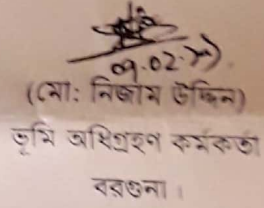 (মো: নিজাম উদ্দিন)
ভূমি অধিগ্রহণ কর্মকর্তা
বরগুনা।